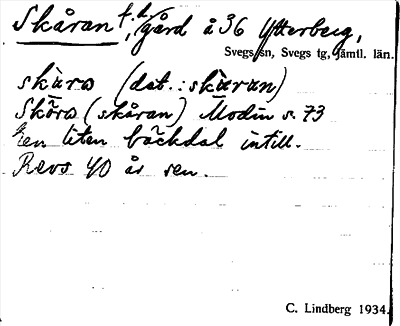 Skåran f.d. gård å 36 Ytterberg,
Svegs sn, Svegs tg, Jämtl. län.
skàra (dat.: skàran)
Skōra (skåran) Modin s. 73
En liten bäckdal intill.
Revs 40 år sen.
C. Lindberg 1934.